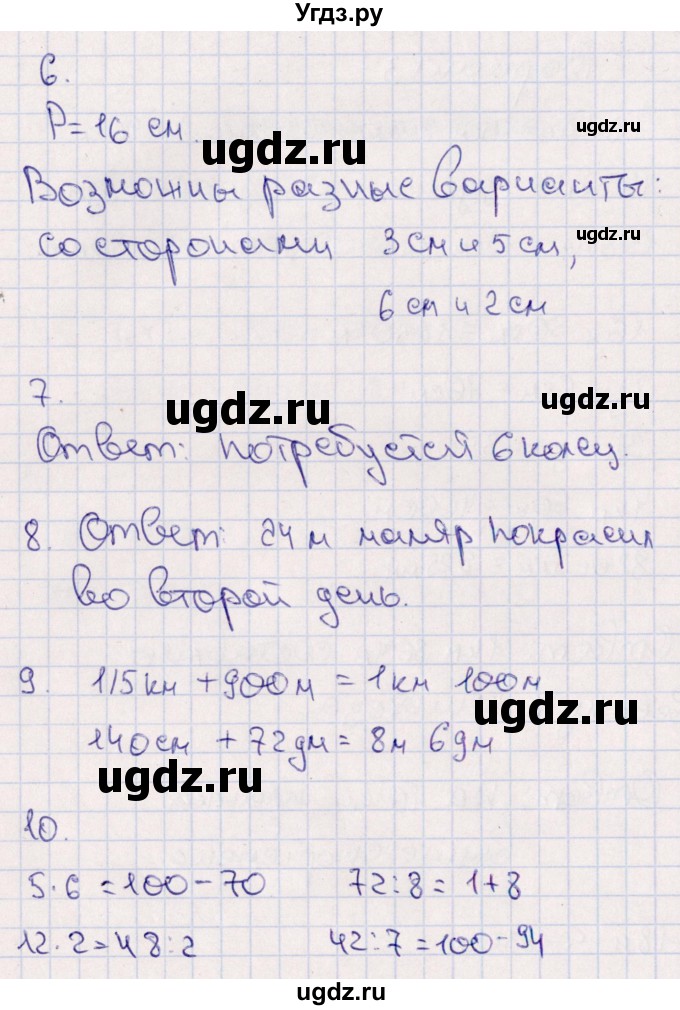 Угдз.ру
6.
P=16 см.
ugdz.ru
ugdz.ru
Возможны разные варианты:
со сторонами 3 см и 5 см,
ugdz.ru
6 см и 2 см
7.
ugdz.ru
ugdz.ru
Ответ: потребуется 6 колец.
8. Ответ: 24 м маляр покрасил
ugdz.ru
во второй день.
9. 1/5 км + 900 м = 1 км 100 м
ugdz.ru
140 см + 72 дм = 8 м 6 дм
ugdz.ru
10.
5·6=100-70 72:8=1+8
12·2=48:2 42:7=100-94
ugdz.ru